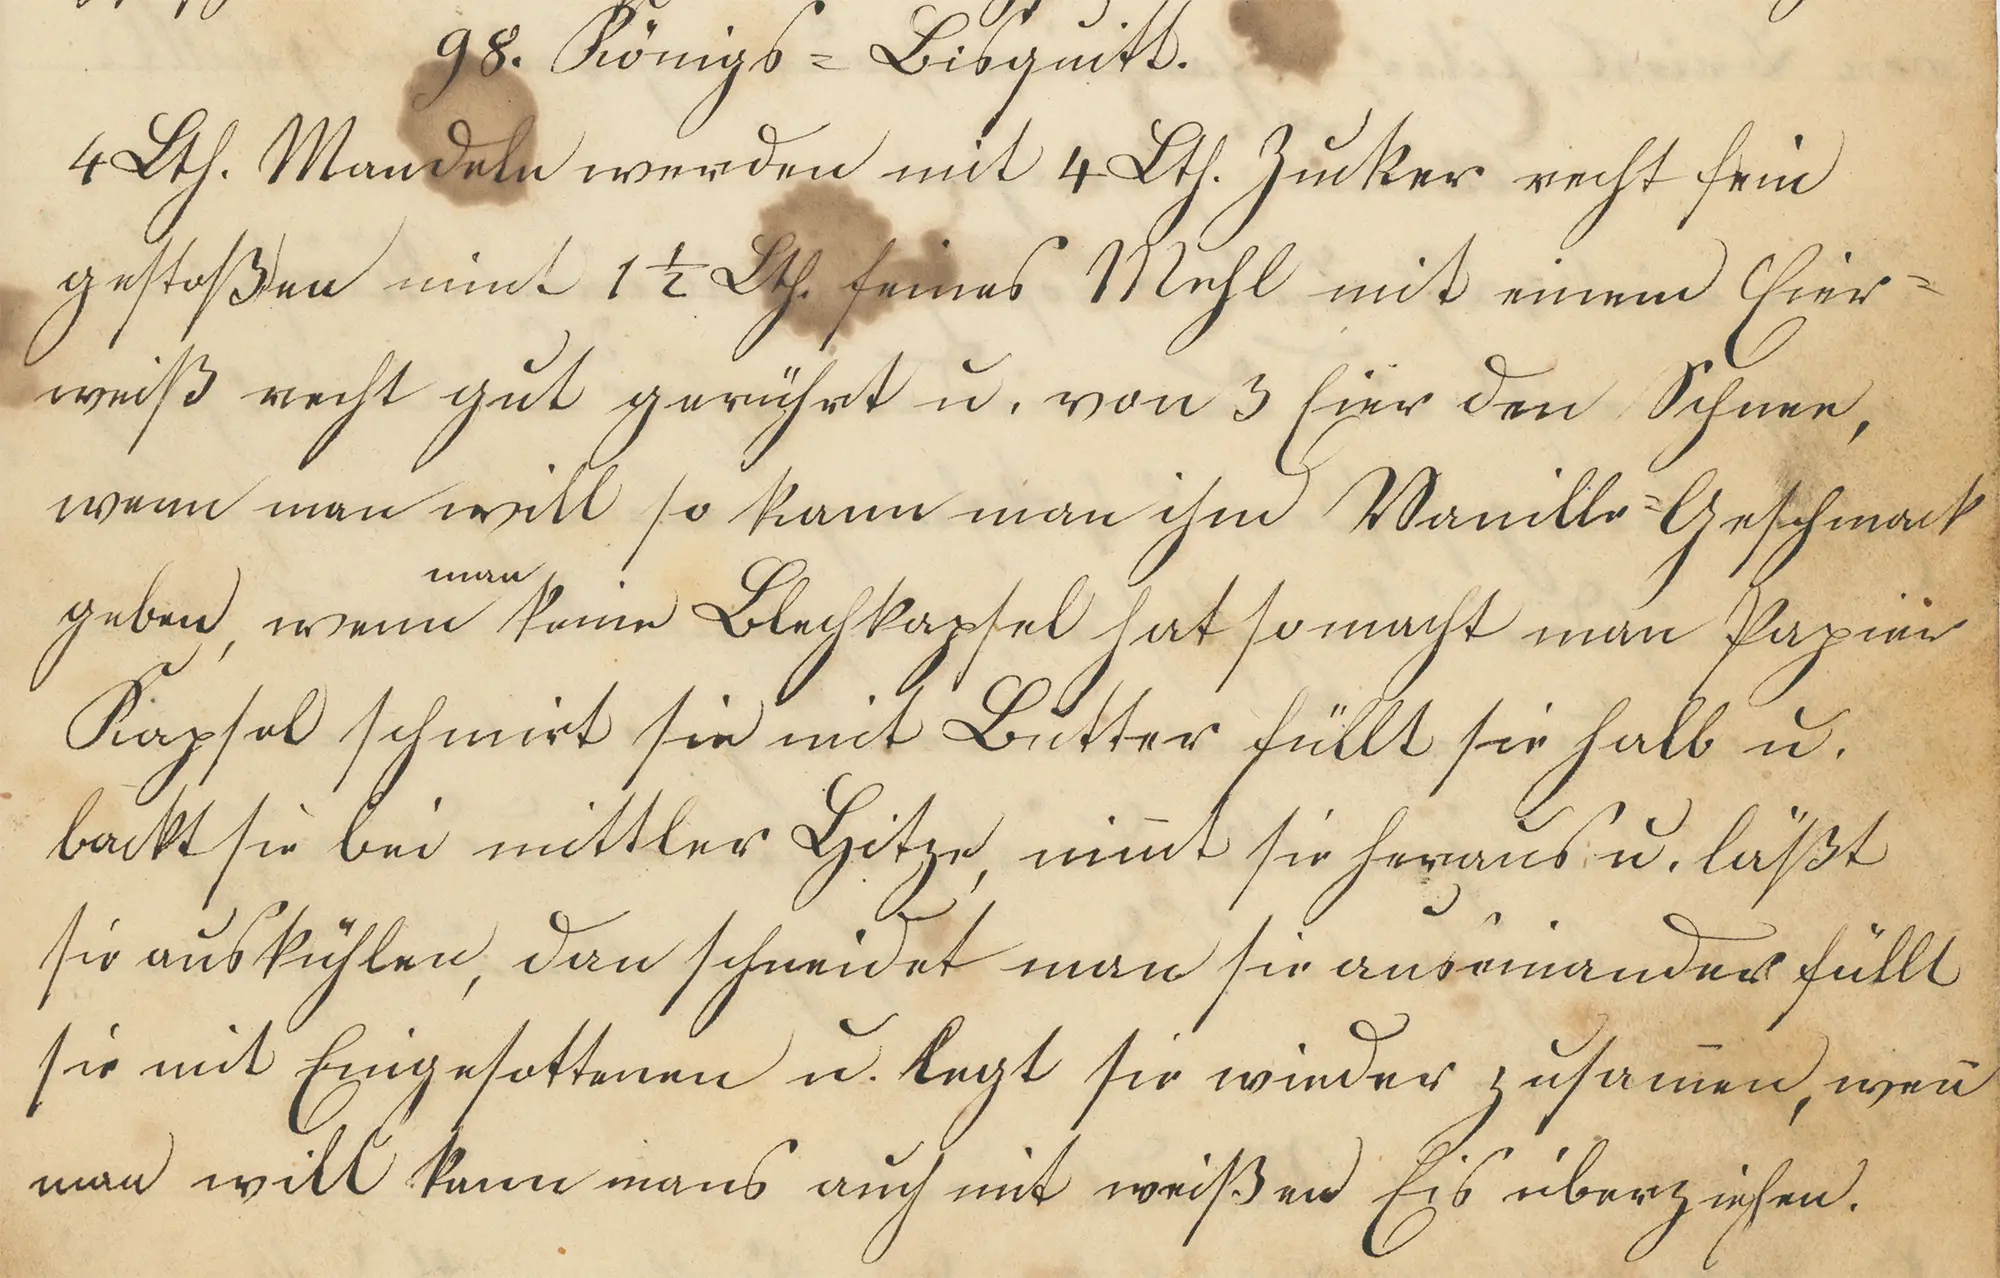 98. Königs=Bisquitt.
4 Lth. Mandeln werden mit 4 Lth. Zucker recht fein
gestoßen nimt 1 ½ Lth. feines Mehl mit einem Eier=
weiß recht gut gerührt u. von 3 Eier den Schnee,
wenn man will so kann man ihm Vanille=Geschmack
geben, wenn man keine Blechkapsel hat so macht man Papier
Kapsel schmirt sie mit Butter füllt sie halb u.
backt sie bei mittler Hitze, nim̅t sie heraus u. läßt
sie auskühlen, dan schneidet man sie auseinander füllt
sie mit Eingesottenen u. legt sie wieder zusam̅en, wen̅
man will kann mans auch mit weißen Eis überziehen.